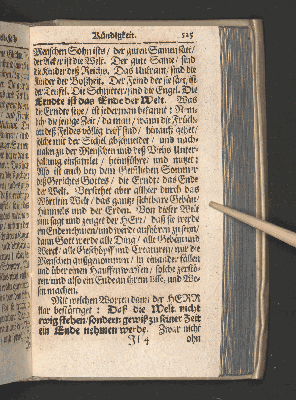 Kündigkeit. 525
Menschen Sohn ists / der guten Samen säet /
der Acker ist die Welt. Der gute Same / sind
die Kinder deß Reichs. Das Unkraut / sind die
Kinder der Boßheit. Der Feind der sie säet, ist
der Teufel. Die Schnitter / sind die Engel. Die
Erndte ist das Ende der Welt. Was
die Erndte seye / ist jederman bekannt: Nem-
lich die jenige Zeit / da man / wann die Früchte
deß Feldes völlig reiff sind / hinauß gehet /
mit der Sichel abschneidet / und nach-
malen zu der Menschen und deß Viehs Unter-
haltung einsamlet / heimführet und nutzet:
Also ist auch bey dem Geistlichen Sommer
deß Gerichts Gottes / die Erndte das Ende
der Welt. Verstehet aber allhier durch das
Wörtlein Welt / das gantze sichtbare Gebäu
Himmels und der Erden. Von dieser Welt
nun sagt und zeuget der HErr / daß sie werde
ein Ende nehmen / und werde aufhören zu seyn /
dann Gott werde alle Ding / alle Gebäu und
Werck / alle Geschöpff und Creaturen / nur die
Menschen außgenommen / in einander fallen
und über einen Hauffen werffen / solche zerstö-
ren / und also ein Ende an ihrem und We-
sen machen.
Mit welchen Worten dann der HERR
klar bestättiget: Daß die Welt nicht
ewig stehen / sondern gewiß zu seiner Zeit
ein Ende nehmen werde. Zwar nicht
4 ohn